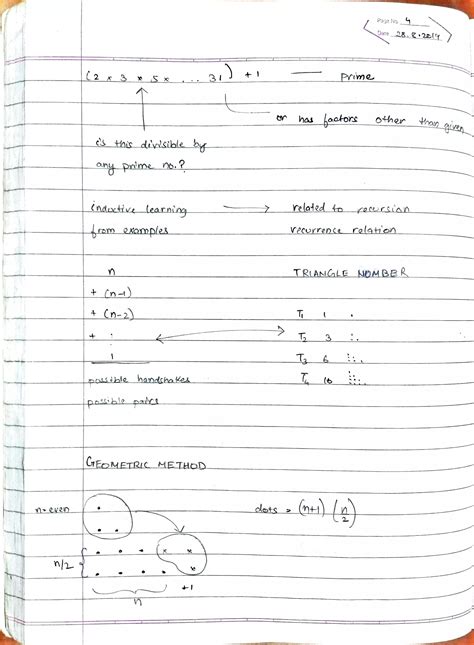 Page No. 4
Date 28.8.2019
(2 x 3 x 5 x ... 31) + 1 — Prime
or has factors other than given
is this divisible by
any prime no.?
inductive learning → related to recursion
from examples recurrence relation
n TRIANGLE NUMBER
+ (n-1)
+ (n-2) T1 1
+ ⋮ T2 3
1 T3 6
possible handshakes T4 10
possible pairs
GEOMETRIC METHOD
n=even dots = (n+1) (n/2)
n/2
n +1